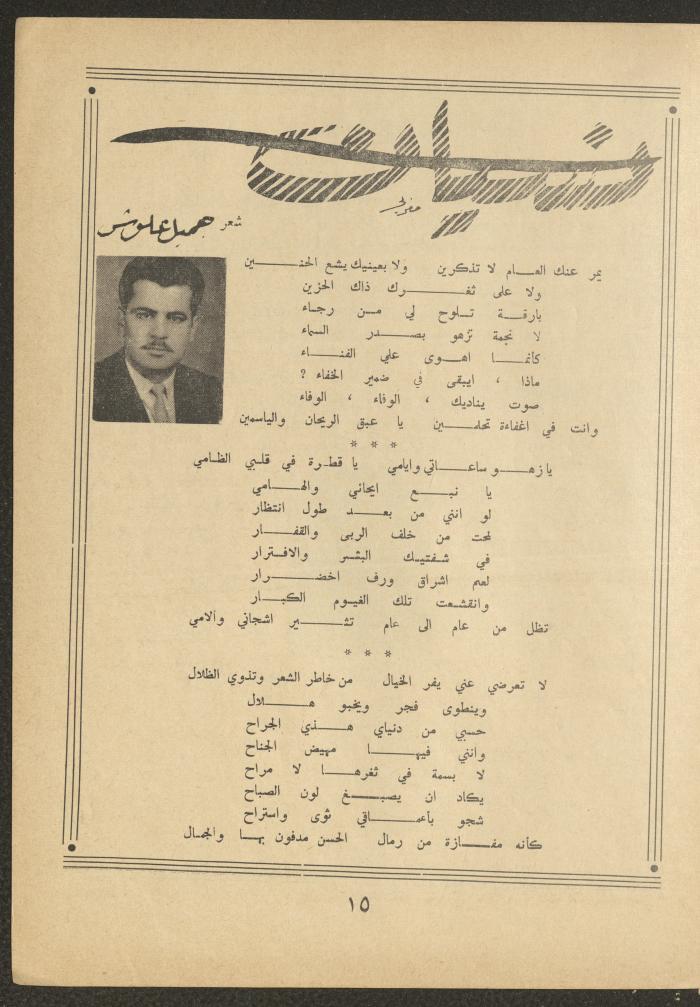 نسيان
شعر جميل علوش
يمر عنك العام لا تذكرين ولا بعينيك يشع الحنين
ولا على ثغرك ذاك الحزين
بارقة تلوح لي من رجاء
لا نجمة تزهو بصدر السماء
كأنما اهوى علي الفناء
ماذا ، ايبقى في ضمير الخفاء ؟
صوت يناديك ، الوفاء ، الوفاء
وانت في اغفاءة تحلمين يا عبق الريحان والياسمين
* * *
يا زهو ساعاتي وايامي يا قطرة في قلبي الظامي
يا نبع ايحائي والهامي
لو انني من بعد طول انتظار
لمحت من خلف الربى والقفار
في شفتيك البشر والافترار
لعم اشراق ورف اخضرار
وانقشعت تلك الغيوم الكبار
تظل من عام الى عام تثير اشجاني والامي
* * *
لا تعرضي عني يفر الخيال من خاطر الشعر وتذوي الظلال
وينطوى فجر ويخبو هلال
حسبي من دنياي هذي الجراح
وانني فيها مهيض الجناح
لا بسمة في ثغرها لا مراح
يكاد ان يصبغ لون الصباح
شجو بأعماقي ثوى واستراح
كأنه مفازة من رمال الحسن مدفون بها والجمال
١٥